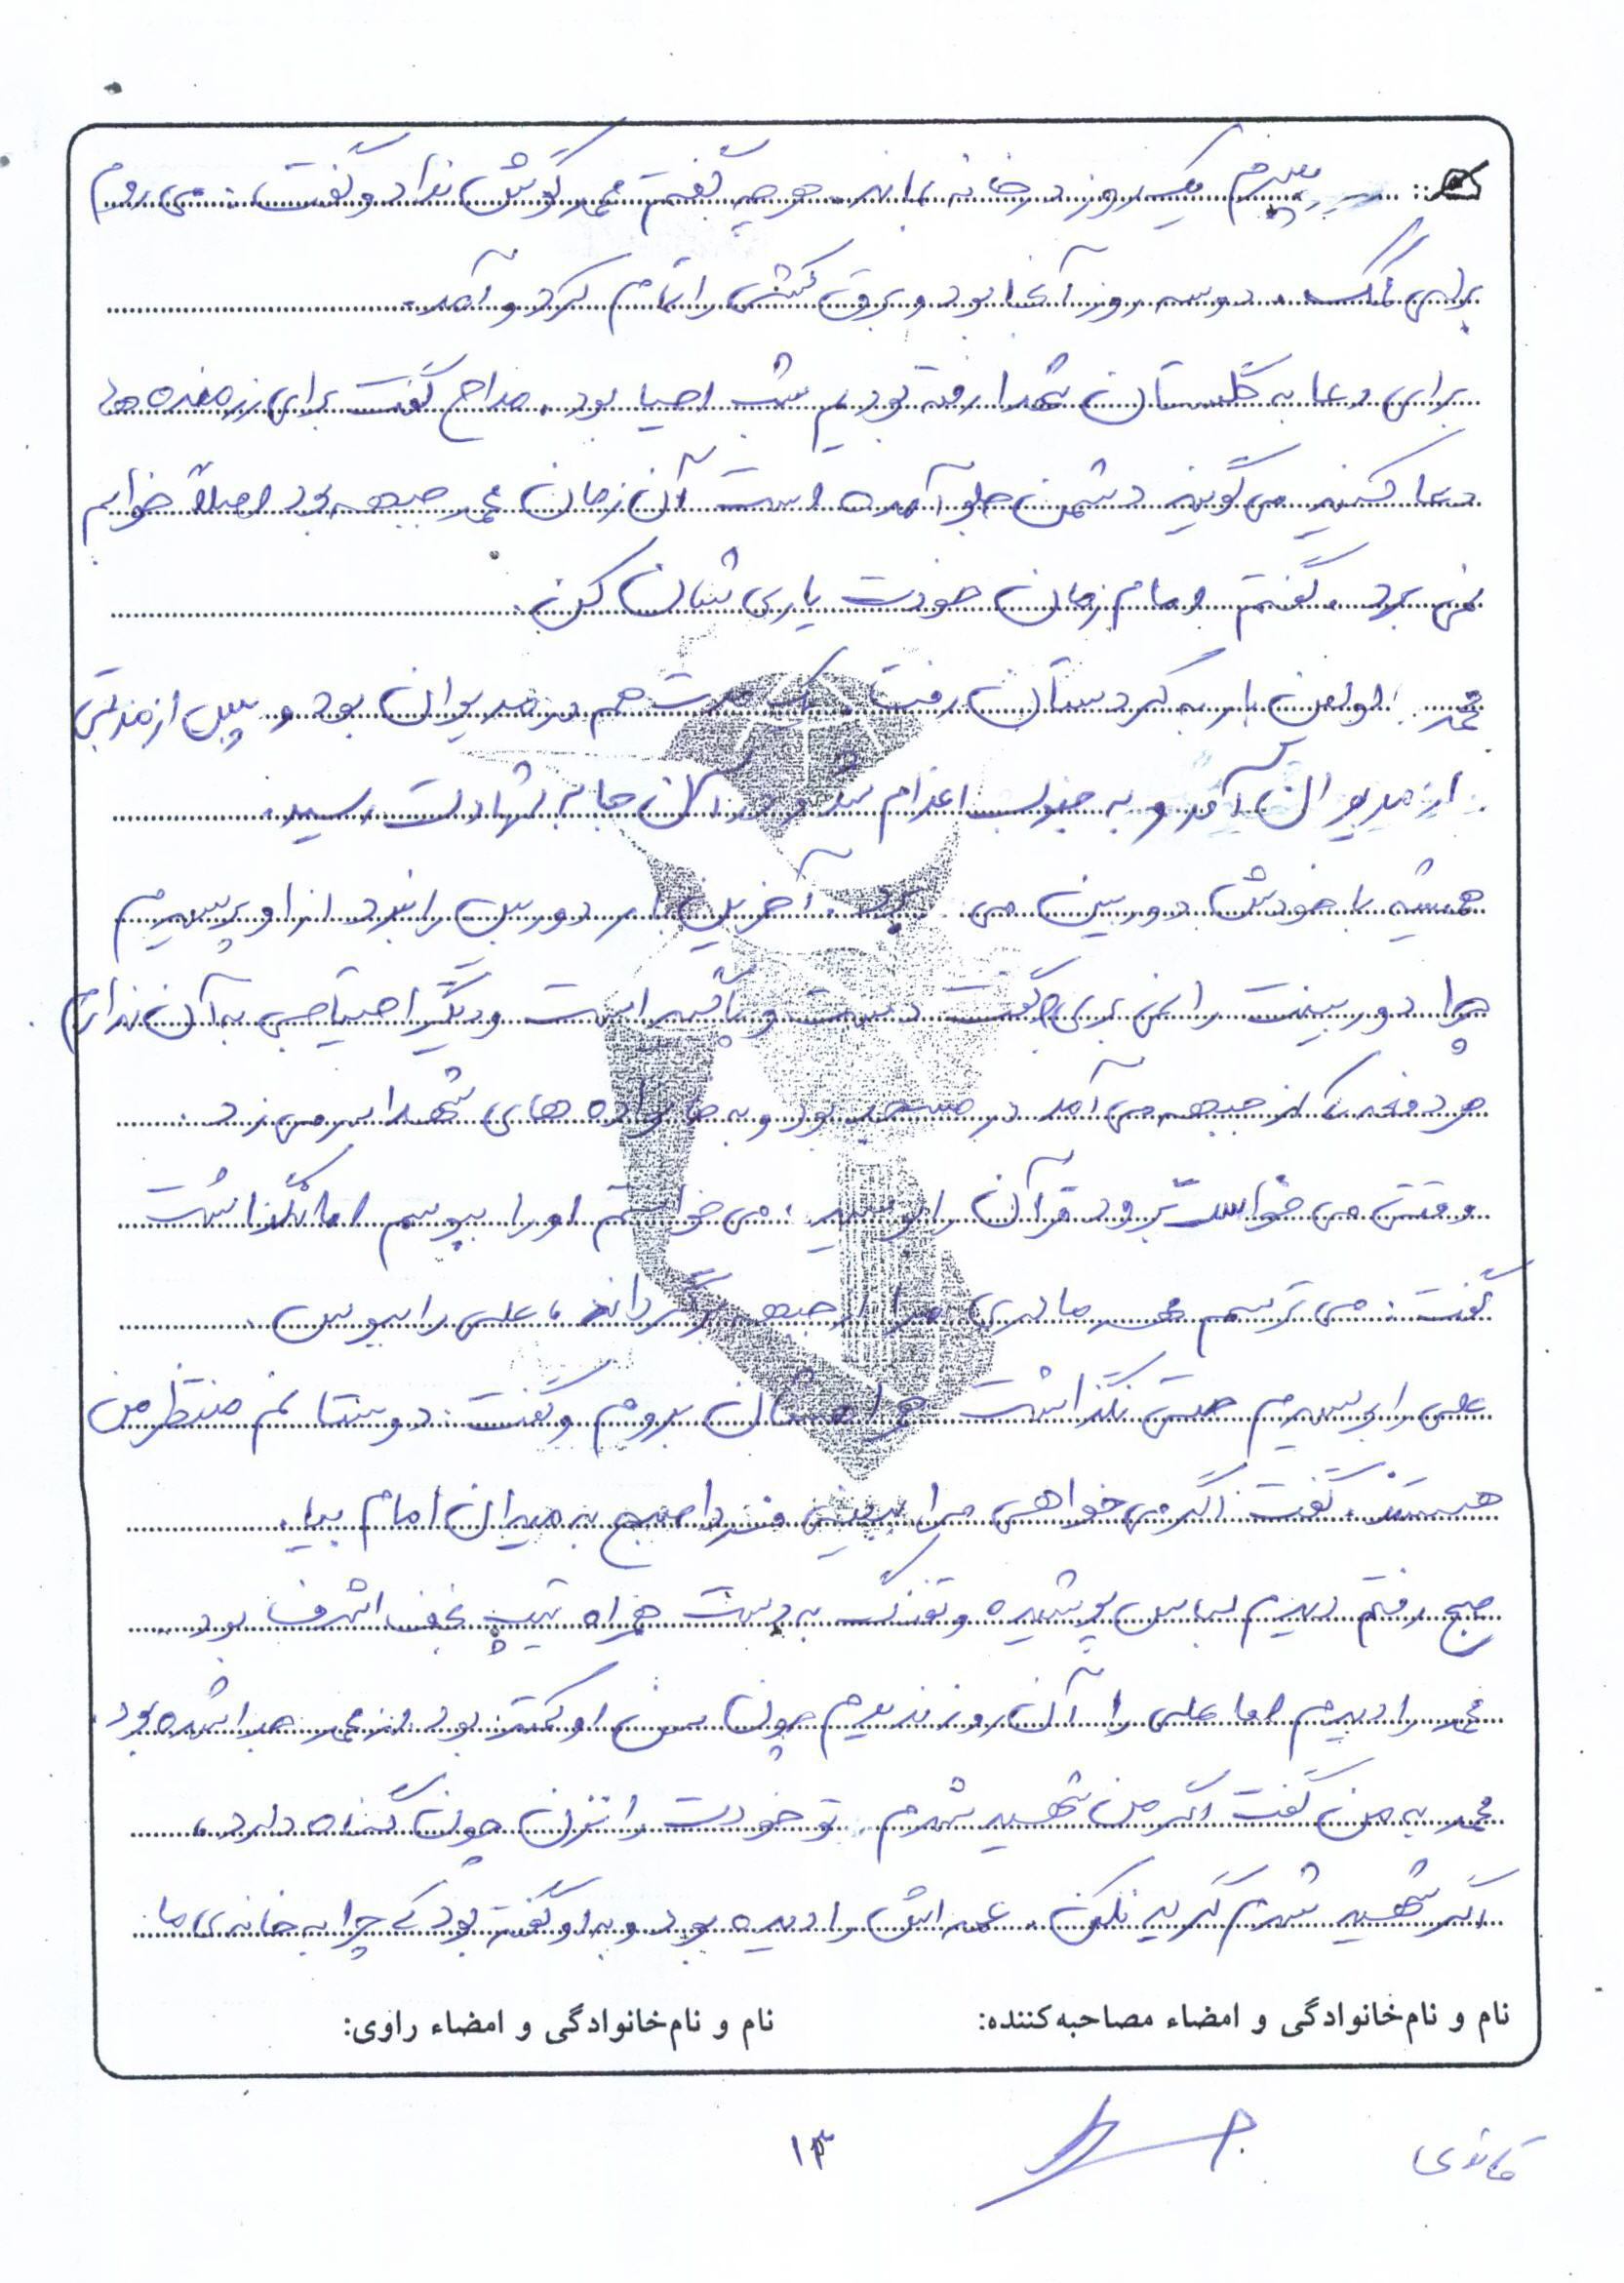 پسرم یک روز در خانه بماند. هر چه گفتم محمد گوش نداد و گفت: می روم
برای کمک. دو سه روز آنجا بود و برق کشی را تمام کرد و آمد.
برای دعا به گلستان شهدا رفته بودیم شب احیا بود. مداح گفت برای رزمنده ها
دعا کنید می گویند دشمن جلو آمده است آن زمان محمد جبهه بود اصلاً خوابم
نمی برد. گفتم امام زمان خودت یاری شان کن.
محمد اولین بار به کردستان رفت. یک مدت هم در مریوان بود و پس از مدتی
از مریوان آمد و به جنوب اعزام شد و در آن جا به شهادت رسید.
همیشه با خودش دوربین می برد. آخرین بار دوربین را نبرد از او پرسیدم
چرا دوربینت را نمی بری؟ گفت دست و پاگیر است و دیگر احتیاجی به آن ندارم.
هر دفعه که از جبهه می آمد در مسجد بود و به خانواده های شهدا سر می زد.
وقتی می خواست برود قرآن را بوسید. می خواستم او را ببوسم اما نگذاشت
گفت: می ترسم مهر مادری مرا از جبهه برگرداند، علی را ببوس.
علی را بوسیدم حتی نگذاشت همراهشان بروم و گفت: دوستانم منتظر من
هستند. گفت: اگر می خواهی مرا ببینی فردا صبح به میدان امام بیا.
صبح رفتم دیدم لباس پوشیده و تفنگ به دست همراه تیپ نجف اشرف بود.
محمد را دیدم اما علی را آن روز ندیدم چون سن او کمتر بود از محمد جدا شده بود.
محمد به من گفت اگر من شهید شدم تو خودت را نزن چون گناه دارد،
اگر شهید شدم گریه نکن. عمه اش را دیده بود و به او گفته بود که چرا به خانه ی ما
نام و نام‌خانوادگی و امضاء مصاحبه‌کننده: نام و نام‌خانوادگی و امضاء راوی:
۱۳